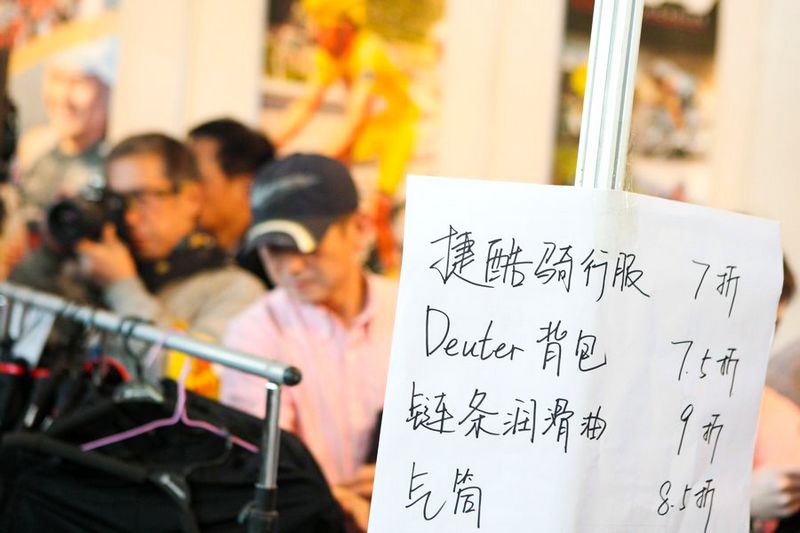 捷酷骑行服 7折
Deuter 背包 7.5折
链条润滑油 9折
气筒 8.5折